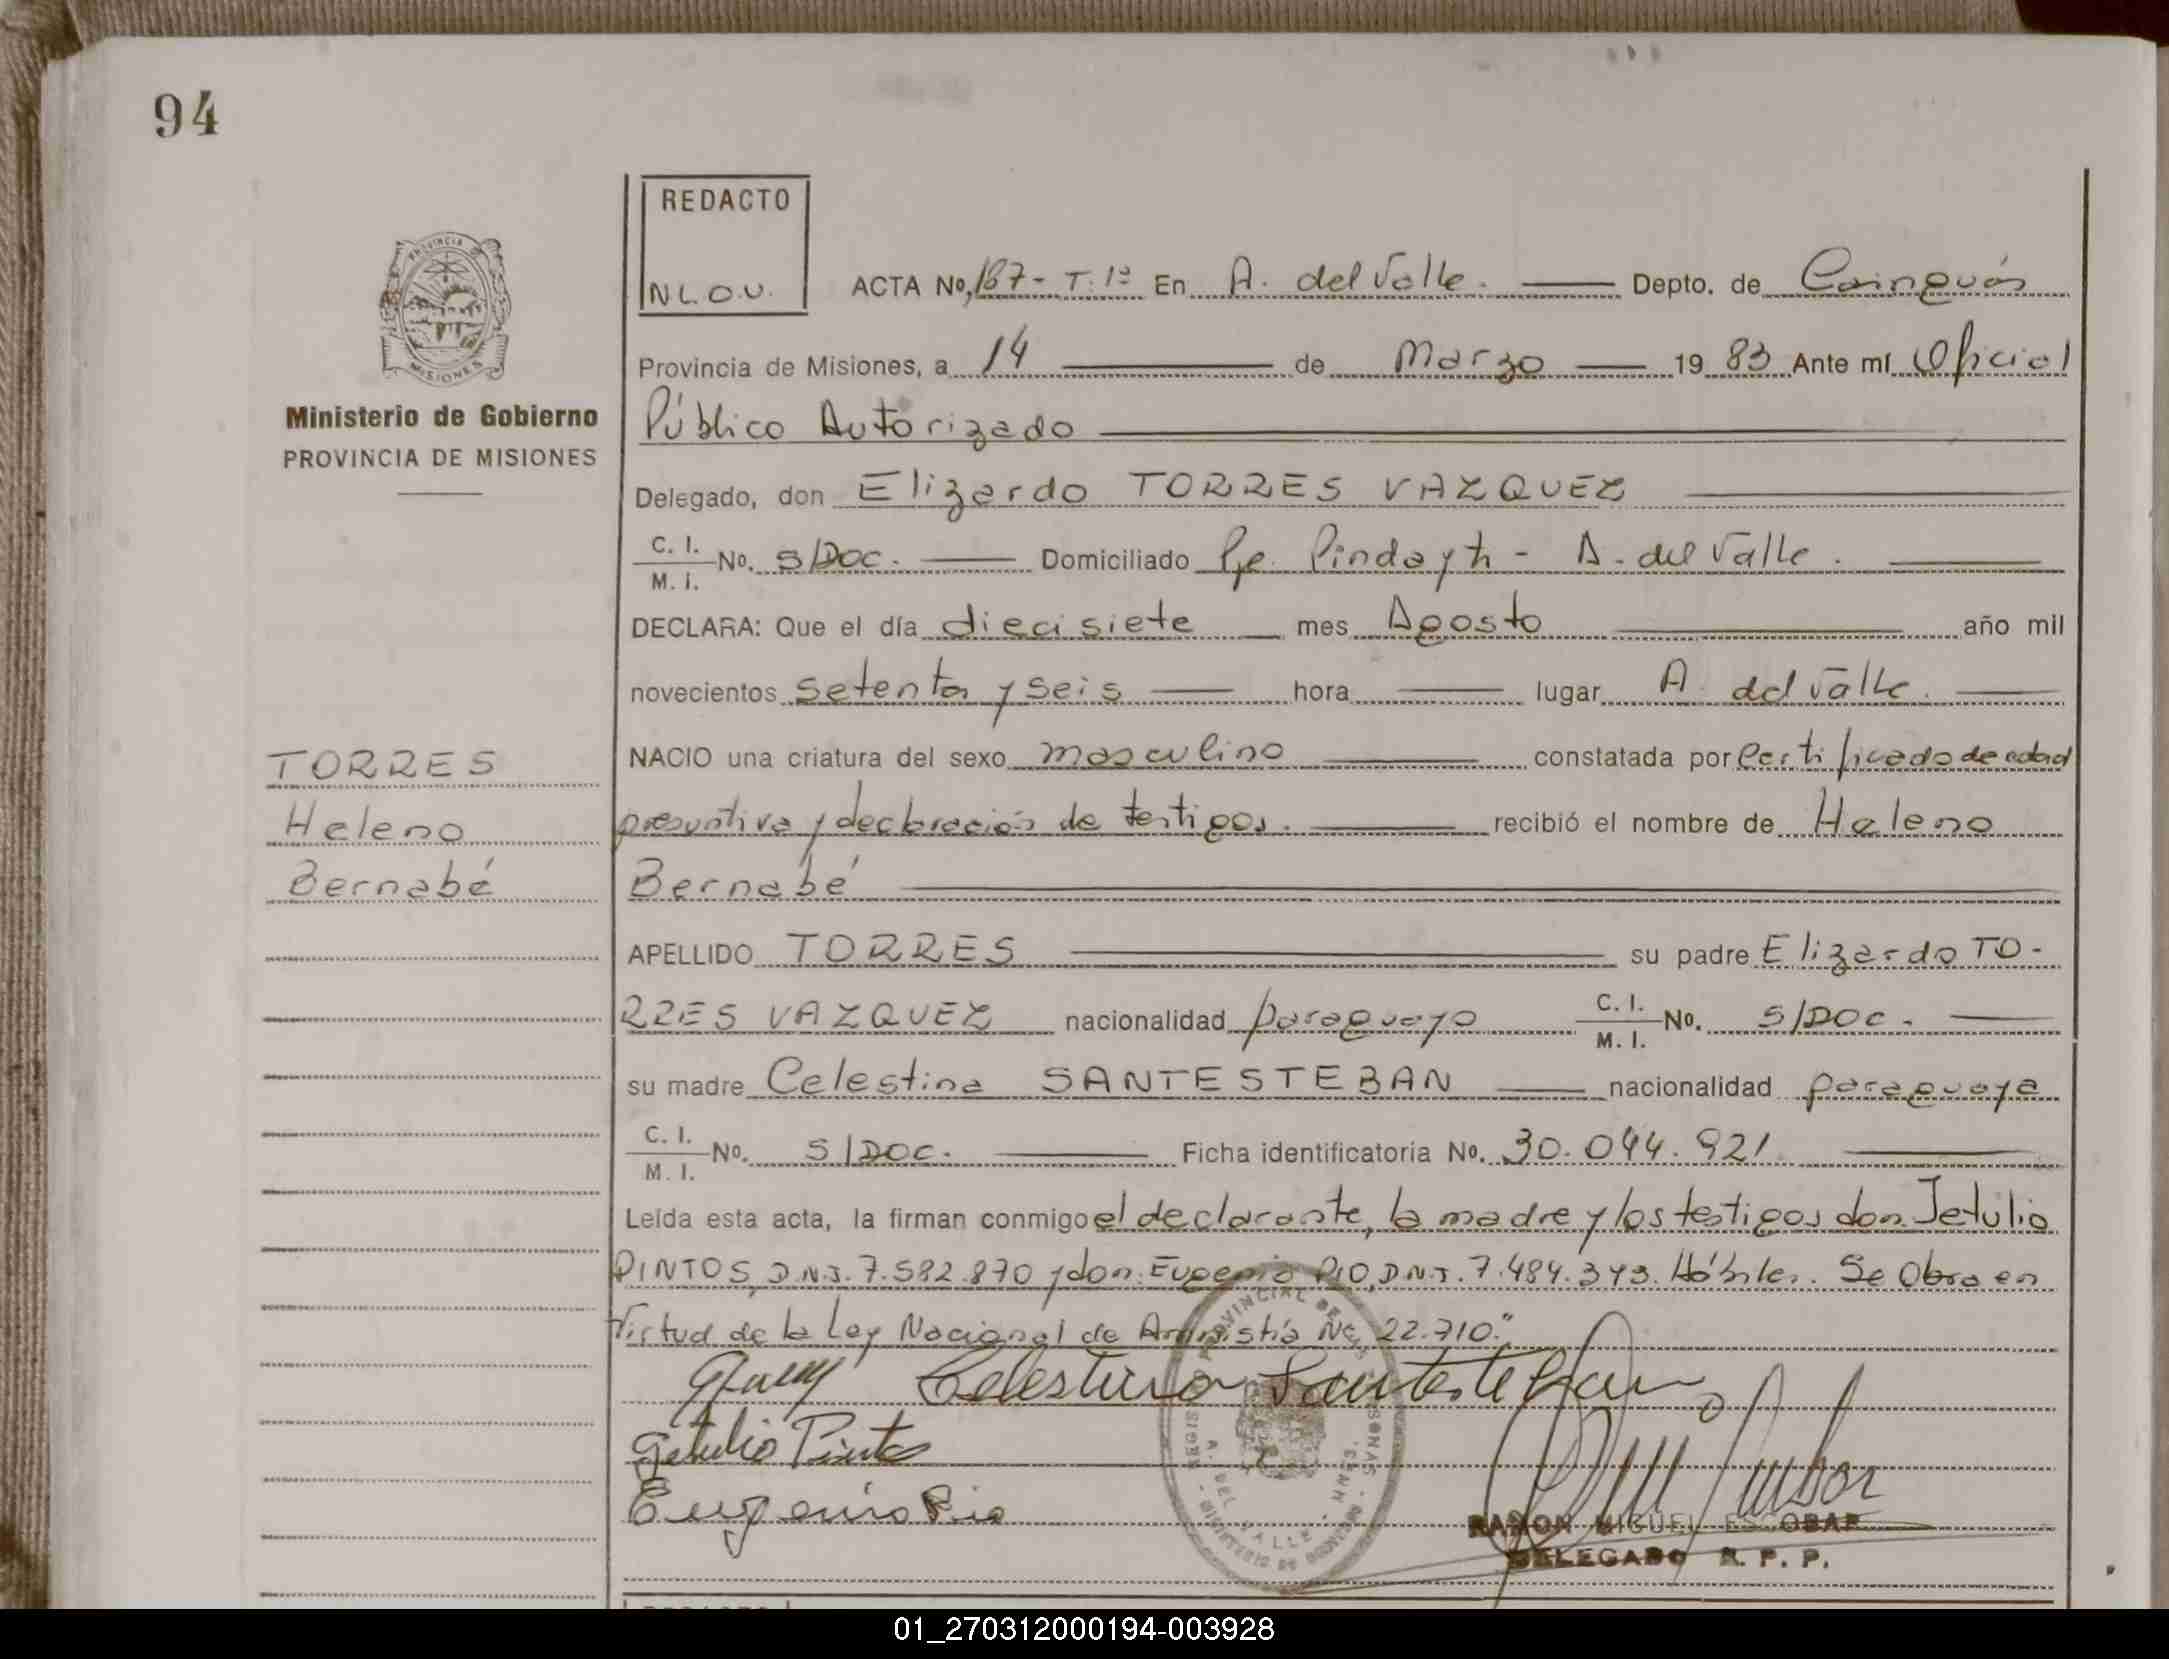 94
REDACTO
N L. O. V.
PROVINCIA
MISIONES
Ministerio de Gobierno
PROVINCIA DE MISIONES
ACTA No, 187 - T. 1º En A. del Valle. Depto. de Cainguás
Provincia de Misiones, a 14 de Marzo 19 83 Ante mí Oficial
Público Autorizado
Delegado, don Elizardo TORRES VAZQUEZ
C. I. / M. I. No. S/DOC. Domiciliado Pje. Pindayti - A. del Valle.
DECLARA: Que el día diecisiete mes Agosto año mil
novecientos setenta y seis hora lugar A. del Valle.
NACIO una criatura del sexo masculino constatada por Certificado de edad
presuntiva y declaración de testigos. recibió el nombre de Heleno
Bernabé
APELLIDO TORRES su padre Elizardo TO-
RRES VAZQUEZ nacionalidad paraguayo C. I. / M. I. No. S/DOC.
su madre Celestina SANTESTEBAN nacionalidad paraguaya
C. I. / M. I. No. S/DOC. Ficha identificatoria No. 30.044.921
Leída esta acta, la firman conmigo el declarante, la madre y los testigos don Jetulio
PINTOS, D.N.I. 7.582.870 y don Eugenio PIO, D.N.I. 7.484.343. Hábiles. Se Obra en
Virtud de la Ley Nacional de Amnistía Nº 22.710."
Celestina Santesteban
Getulio Pintos
Eugenio Pio
RAMON MIGUEL ESCOBAR
DELEGADO R. P. P.
TORRES
Heleno
Bernabé
01_270312000194-003928